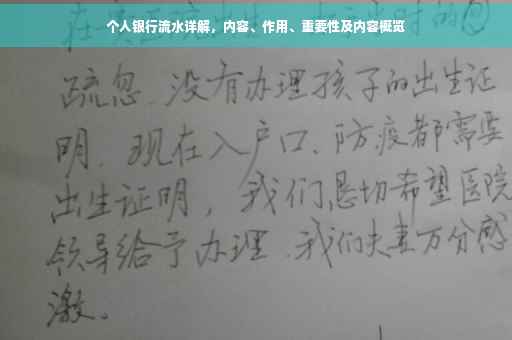 个人银行流水详解，内容、作用、重要性及内容概览
疏忽、没有办理孩子的出生证
明、现在入户口、防疫都需要
出生证明，我们恳切希望医院
领导给予办理、我们夫妻万分感
激。